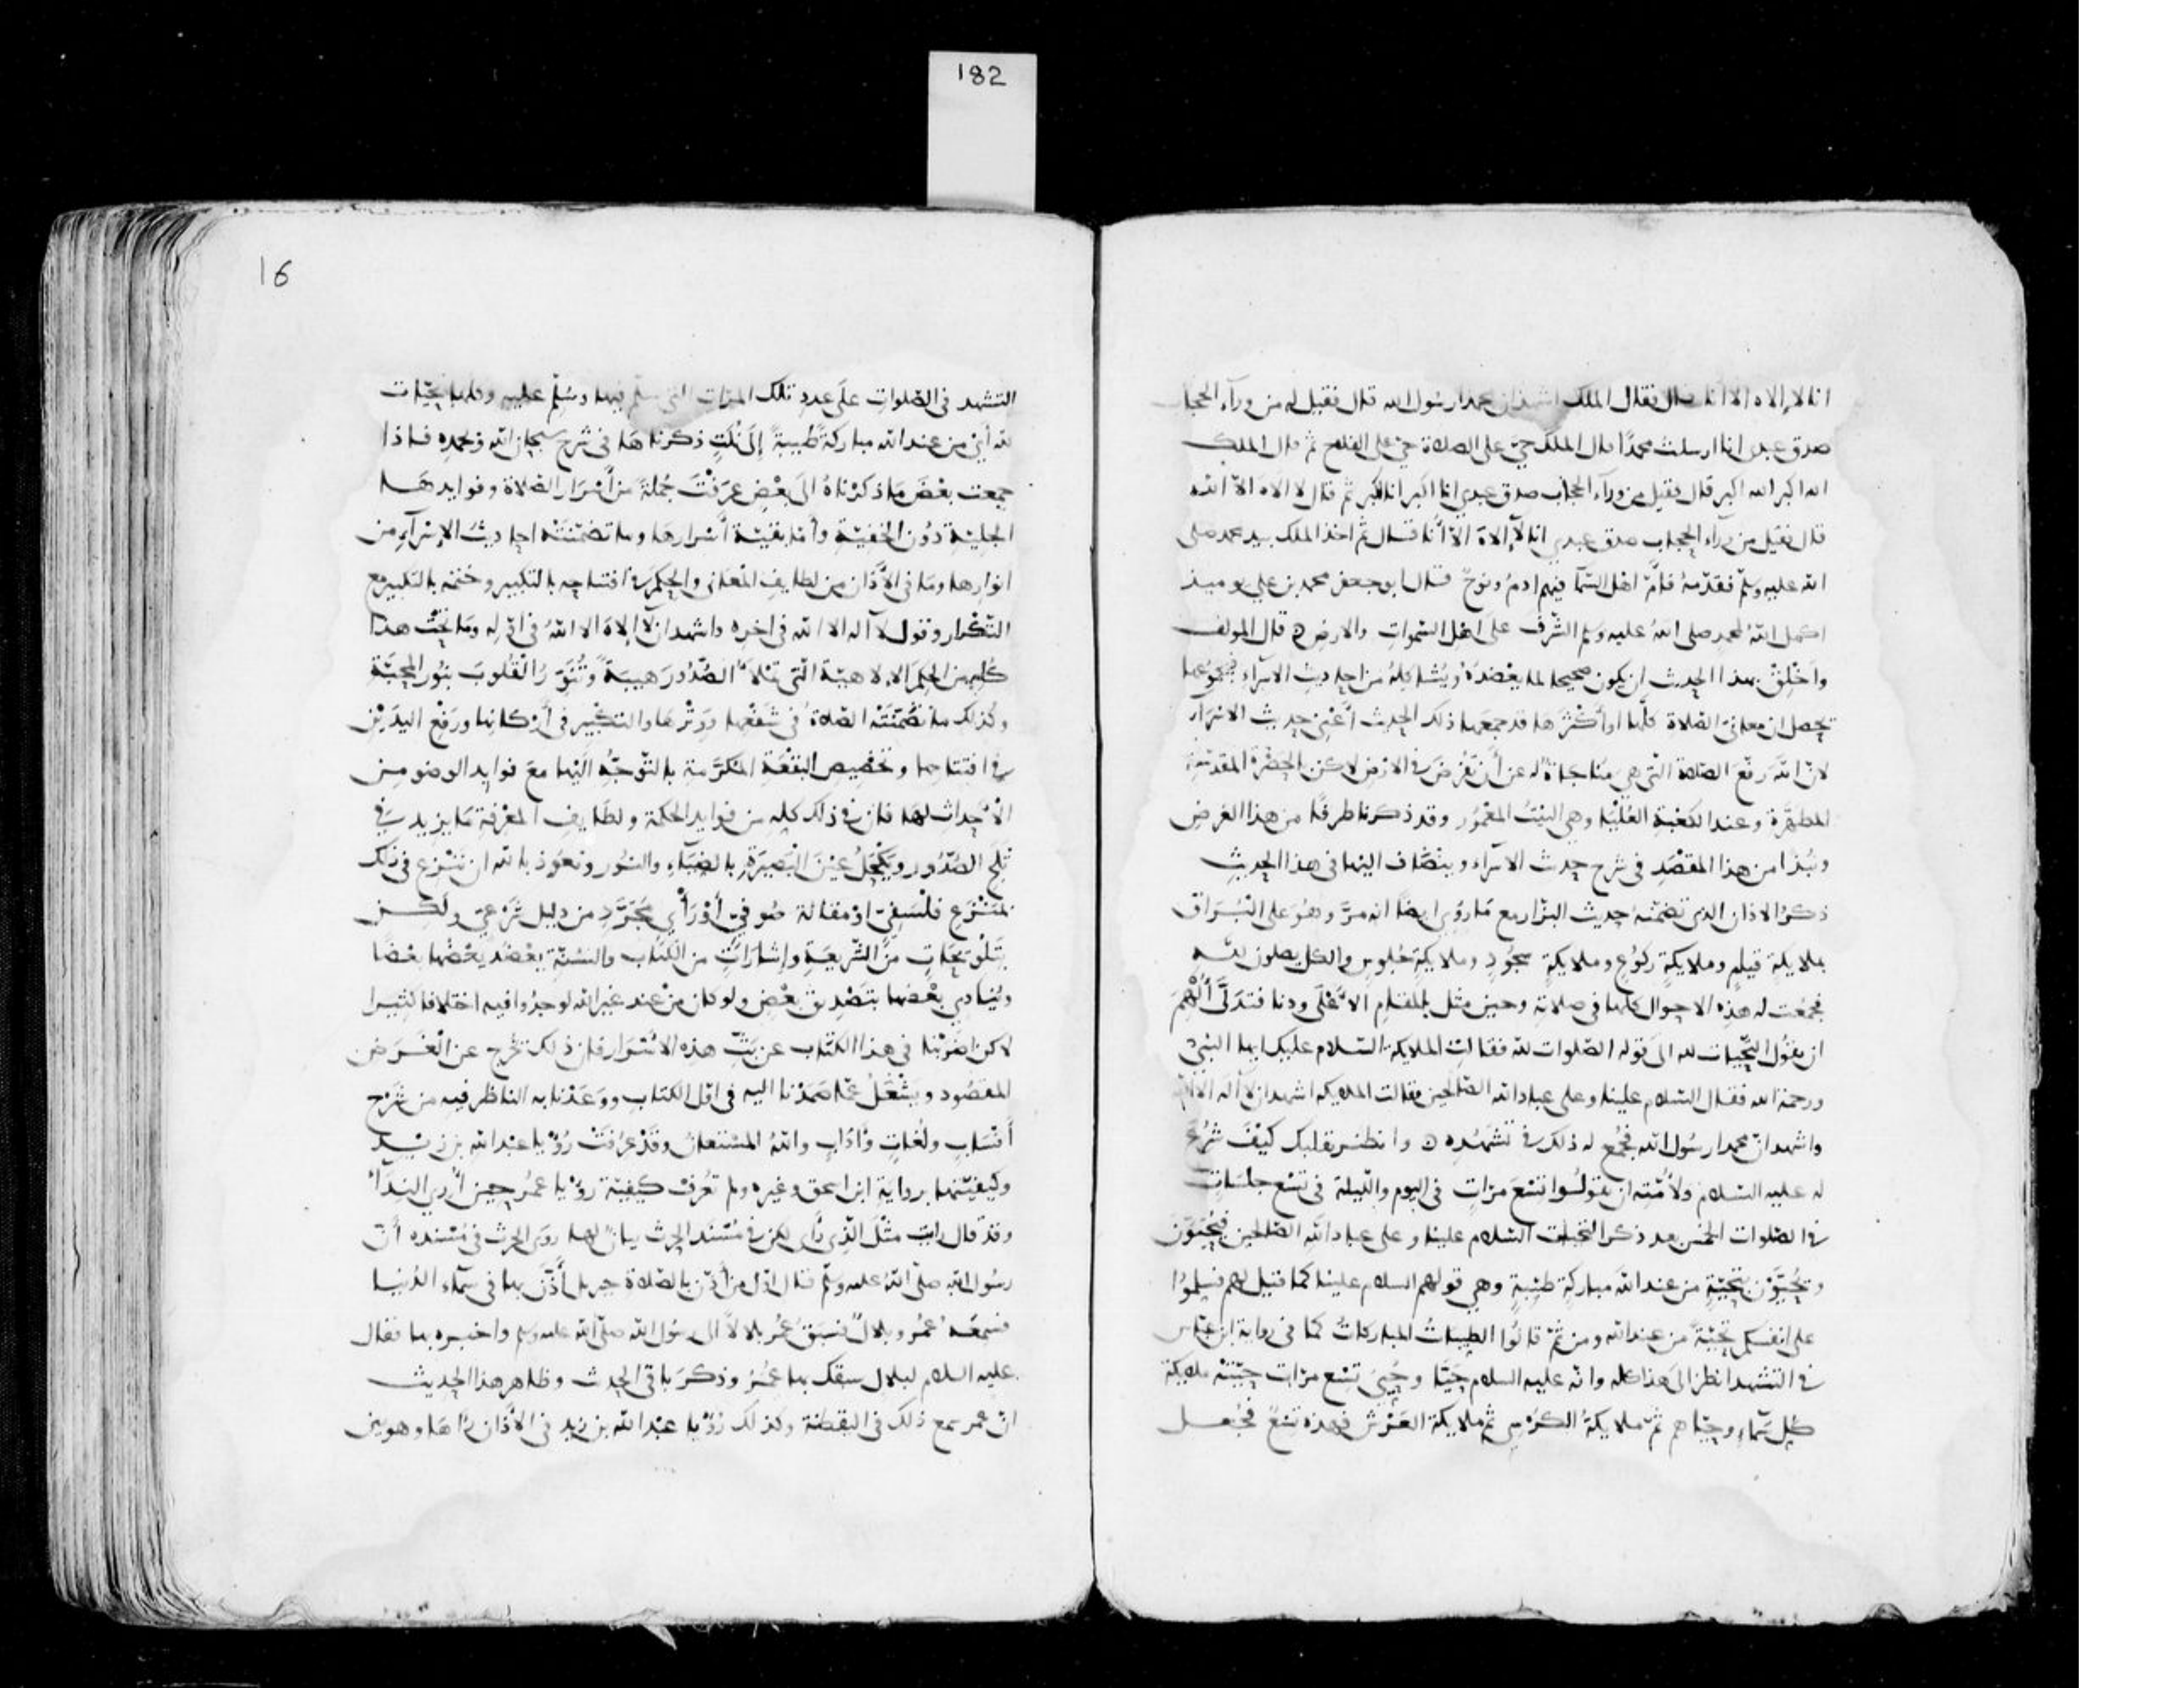 182
انا لا إلاه الا أنا قال فقال الملك اشهد ان محمدا رسول الله قال فقيل له من ورآء الحجاب
صدق عبدى انا ارسلت محمدًا قال الملك حيّ على الصلاة حيّ على الفلاح ثم قال الملك
الله اكبر الله اكبر قال فقيل من ورآء الحجاب صدق عبدي انا اكبر انا اكبر ثم قال لا الاه الا الله
قال فقيل من ورآء الحجاب صدق عبدي انا لآ إلاهَ الآ أنا قال ثم اخذ الملك بيد محمد صلى
الله عليه وسلّم فقدّمهُ فامَّ اهل السّمآ فيهم ادمُ ونوحٌ قال ابو جعفر محمد بن علي يوميذ
اكمل اللهُ لمحمد صلى اللهُ عليه وسلم الشّرفَ على اهل السّموات والارض قال المولف
واَخْلِقْ بهذا الحديث ان يكون صحيحا لما يعْضدهُ ويُشاكلهُ من احاديث الاسرآء فبمجموعها
تحصل ان معانيَ الصلاة كلَّها او أكثرَها قد جمعها ذلك الحديث أعْنِي حديث الاسرآء
لانّ اللهَ رفعَ الصلاة التي هي مناجاة له عن أن تُفرَضَ في الارض لاكن بالحضرة المقدسة
المطهّرة وعند الكعْبةِ العُلْيَا وهي البيْتُ المعْمُور وقد ذكرنا طرفًا من هذا الغرض
ونُبذا من هذا المقصَدِ في شرح حديث الاسرآء وينضاف اليها في هذا الحديثِ
ذكرُ الاذان الذي تضمّنهُ حديث البزّار مع مَا رُوي ايضًا انه مرَّ وهُوَ على البُراق
بملايكةٍ قيامٍ وملايكةٍ ركوُعٍ وملايكةٍ سجُودٍ وملايكةٍ جُلوسٍ والكل يصلون لله
فجمُعت له هذه الاحوال كلها في صلاته وحين مثل بالمقام الاعْلَى ودنا فتدلَّى أُلْهِمَ
ان يقوُل التّحيّات لله الى قوله الصّلوات لله فقالت الملايكة السّلام عليك ايها النبيّ
ورحمة الله فقال السّلام علينا وعلى عباد الله الصّالحين فقالت الملايكه اشهد ان لا اله الا الله
واشهد انّ محمدا رسُول الله فجُمع له ذلك في تشهُّدِه وانظر بقلبك كيْفَ شُرعَ
له عليه السّلام ولأُمَّتِه ان يقولُوا تسْعَ مرّاتٍ في اليوم والليلة في تسْع جلسَاتٍ
في الصّلوات الخمس بعد ذكر التحيات السّلام علينا وعلى عباد اللهِ الصّالحين فيُحَيّوْنَ
ويُحَيَّوْن بتحيّةٍ من عند الله مباركةٍ طيّبةٍ وهي قولهم السلام علينا كما قيل لهم فسلموُا
على انفسكم تحيّةً من عند الله ومن ثَمَّ قالُوا الطيّباتُ المباركاتُ كما في رواية ابن عبّاس
في التشهد انظر الى هذا كله وانه عليه السلام حيّا وحُيّيَ تسْع مرّات حيّتْه ملايكة
كُل سمآءٍ وحيّاهم ثمّ ملايكةُ الكرْسي ثم ملايكة العرْش فهذه تسْعٌ فجُعل
16
التشهد في الصّلوات على عدد تلك المرّات التي سلّم فيها وسُلّم عليه وكلها تحيّات
لله أيْ من عند الله مباركةً طيبةً إلى نُكَتٍ ذكرناهَا في شرح سبحان الله وبحمده فاذا
جمعت بعْضَ مَا ذكرْناهُ الى بَعْضٍ عرَفْتَ جُملةً من أسْرَار الصلاة وفوايدهَا
الجليّة دُون الخفيّةِ وأمّا بقيّة أسْرارها وما تضمّنتْه احاديثُ الإسْرآءِ من
انوارها ومَا في الأَذان من لطايف المعَاني والحكم في افتتاحِه بالتكبير وختمه بالتكبير مع
التّكرار وقول لآ اله الا الله في اخره واشهد ان لا إلاهَ الا اللهُ في اوّله ومَا تحْتَ هذا
كُله من الحِكم الالاهيّة الّتي تمْلأُ الصّدُورَ هيبةً وتُنوّرُ القُلوبَ بنُور المحبّةِ
وكذلك ما تضَمّنتْه الصّلاةُ في شفْعها ووِتْرهَا والتكبير في أرْكانها ورَفْع اليدَيْن
في افتتاحها وتخْصِيص البُقْعةِ المُكرَّمة بالتّوجّهِ الَيها معَ فوايد الوضو من
الأحْداثِ لها فانّ في ذلك كله من فوايد الحكمة ولطَايفِ المعْرفة مَا يزيد في
ثَلَجِ الصّدُور ويكْحَلُ عيْنَ البَصِيرَةِ بالضيآءِ والنُور ونعوُذ بالله ان ننْزع في ذلك
بمنْزعٍ فلْسَفيٍّ اوْ مقالة صُوفيّ أوْ رأْيٍ مُجَرَّدٍ من دليل شَرْعِيّ ولكن
بتَلْويحَاتٍ منَ الشّريعَةِ وإشَارَاتٍ من الكتَاب والسُنّةِ يعْضُد بعْضُها بعْضًا
ويُنادِي بعْضُها بتَصْديق بعْضٍ ولو كان منْ عند غير الله لوجدُوا فيه اختلافا كثيرا
لاكن اضرَبْنا في هذا الكتَاب عن بَثّ هذه الأَسْرَار فان ذلك تخرج عن الغَرض
المقصُود ويشْغَلُ عمّا صَمَدْنا اليه في اوّل الكتاب ووعَدْنا به الناظر فيه من شَرْح
أنْسَابٍ ولُغاتٍ وآدابٍ واللهُ المسْتعانُ وقَدْ عرُفَتْ رُؤيا عبْد الله بن زيد
وكيفيّتُها بروايةِ ابن اسحق وغيره ولم تعْرَفْ كيفيّة رؤيا عمُر حِين أُرِي النِدَآءَ
وقدْ قال رايت مثْلَ الّذِي رأى لكن في مُسْند الحرث بيانٌ لها روَى الحرث في مُسْنده أنّ
رسُول الله صلّى اللهُ عليه وسلّم قال اوّل من أذّنَ بالصلاة جبريل أذّنَ بها في سمآءِ الدُنيا
فسَمِعَهُ عمُر وبلالٌ فسَبَقَ عمُر بلالاً الى رسُول الله صلّى الله عليه وسلم واخبره بها فقال
عليه السلام لبلال سبقك بها عمُر وذكرَ باقي الحديث وظاهر هذا الحديث
انّ عمر سمع ذلك في اليقظة وكذلك رُؤيا عبْد الله بن زيد في الأذان رآها وهو بين